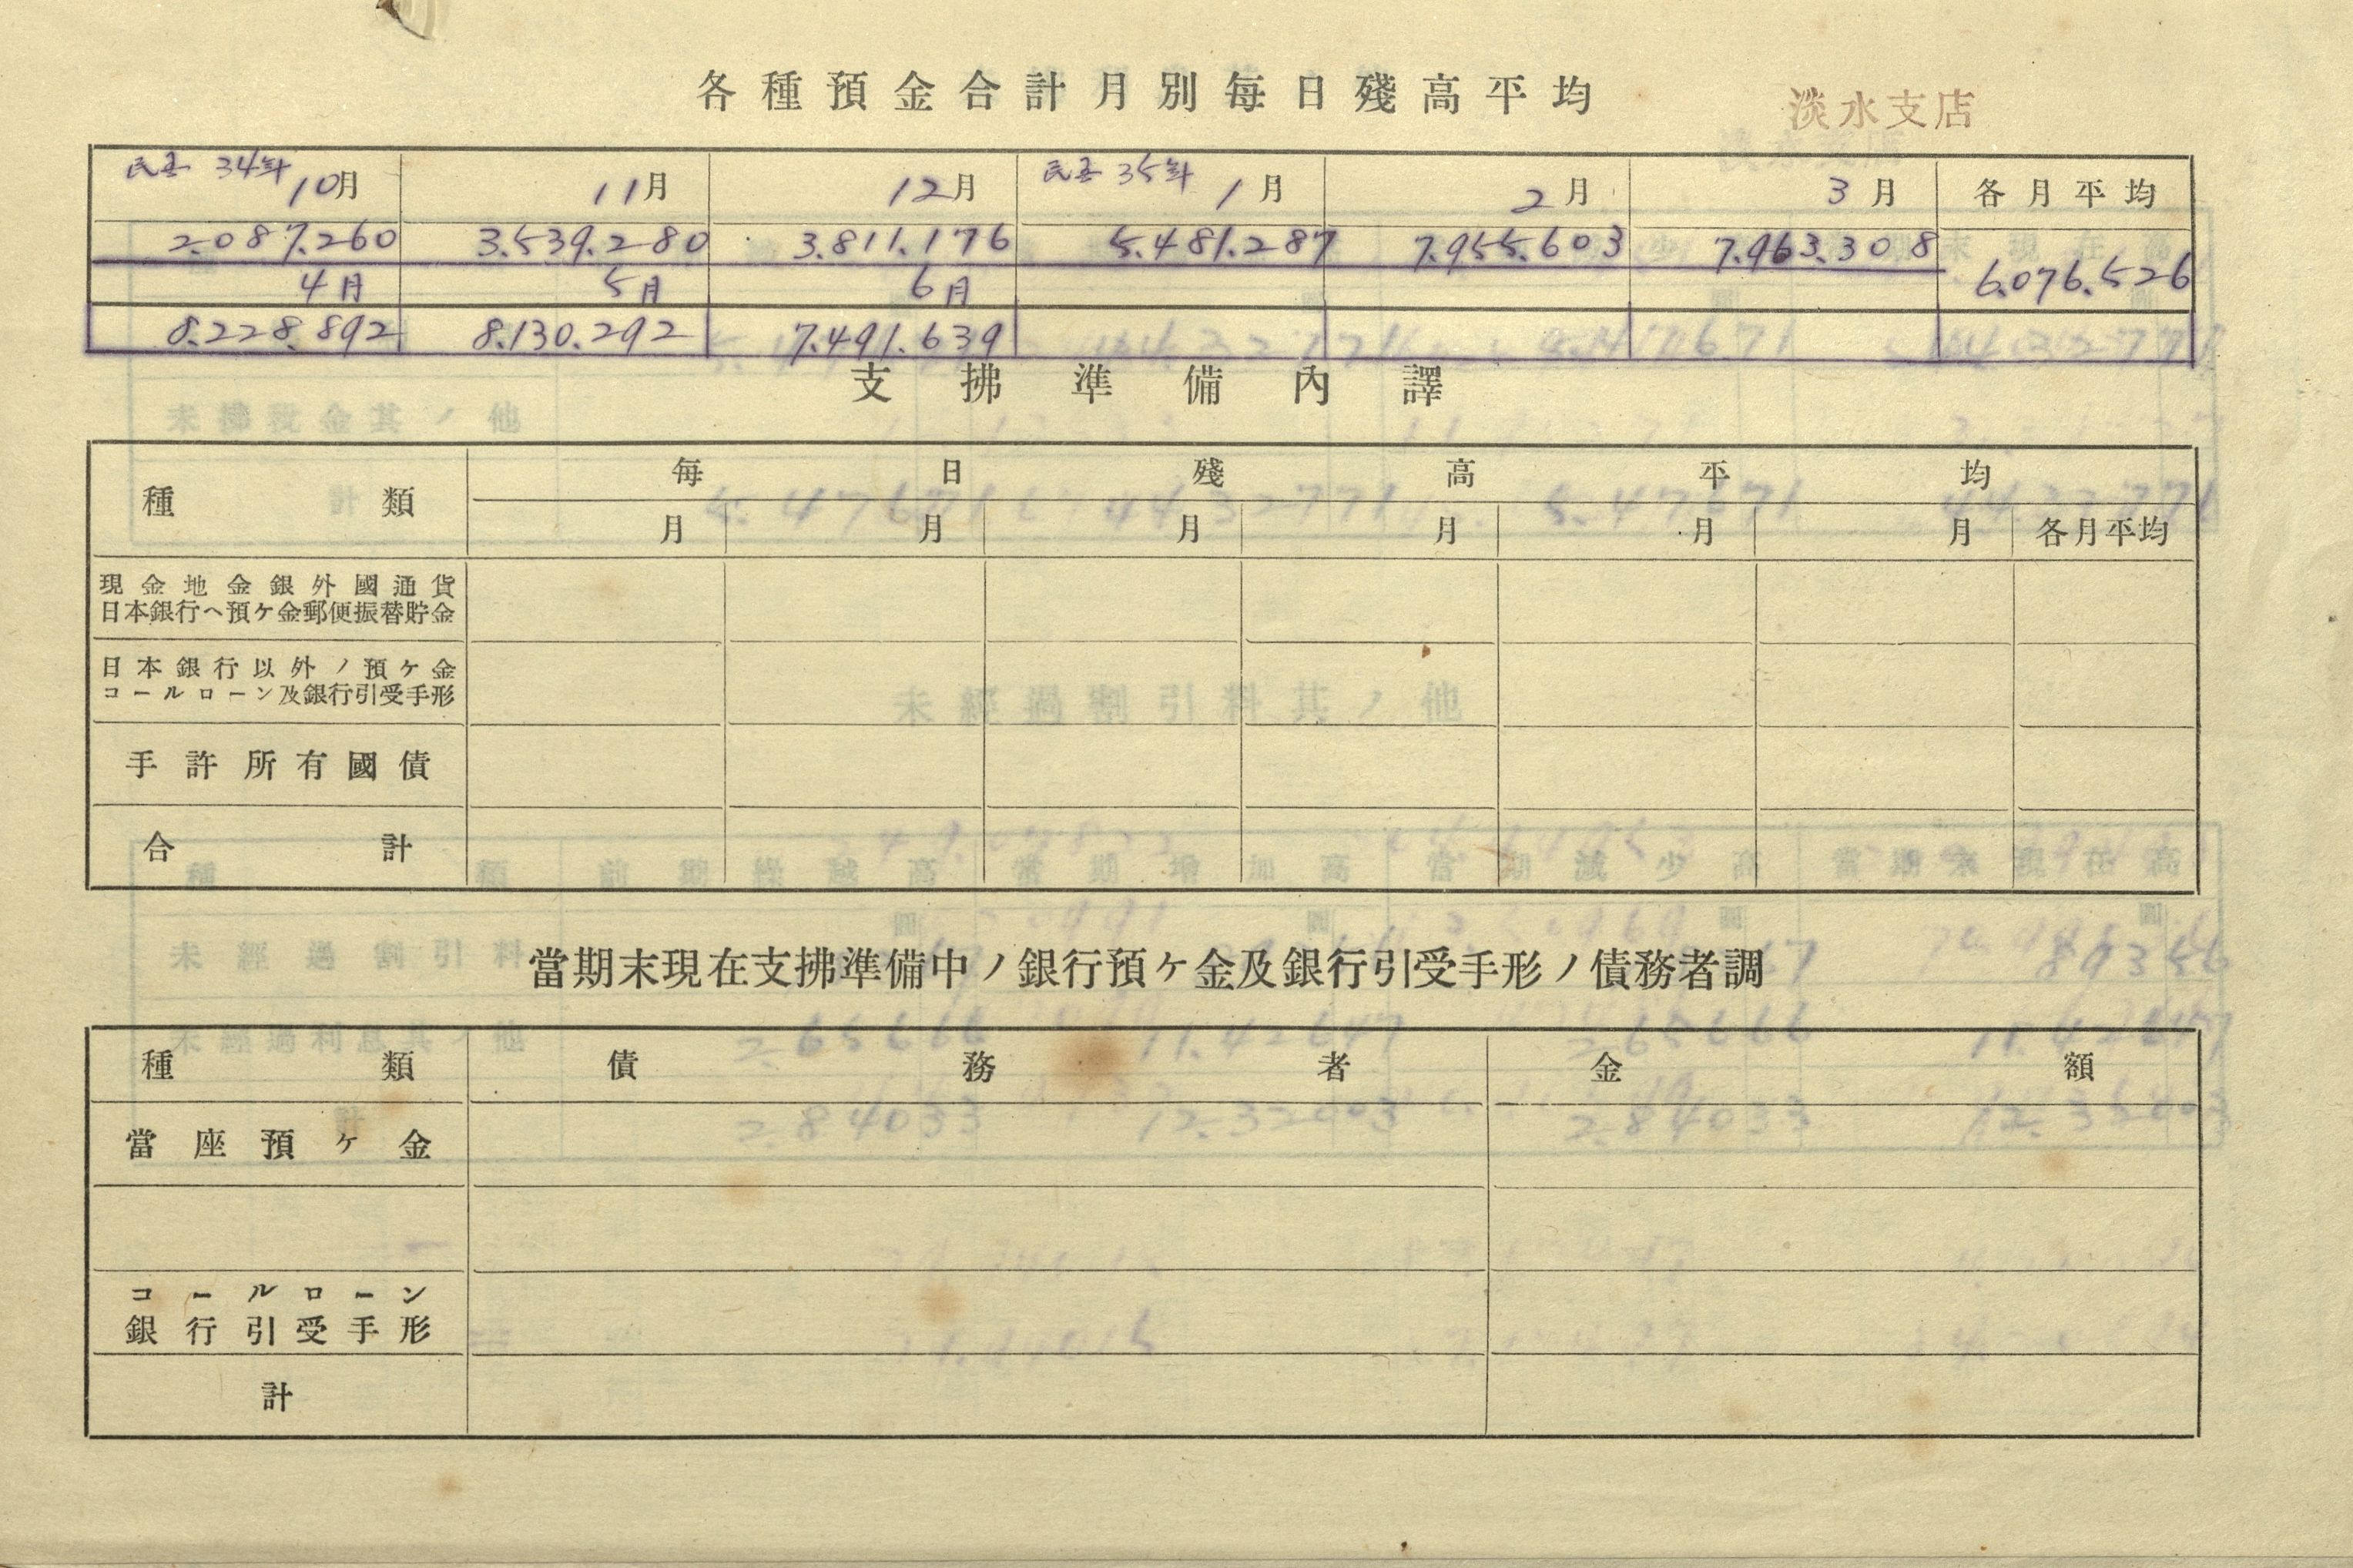 各種預金合計月別每日殘高平均
淡水支店
民国 34年 10月 11月 12月 民国 35年 1月 2月 3月 各月平均
2.087.260 3.539.280 3.811.176 5.481.287 7.955.603 7.963.308 6.076.526
4月 5月 6月
8.228.892 8.130.292 7.491.639
支拂準備內譯
種類 每日殘高平均
月 月 月 月 月 月 各月平均
現金地金銀外國通貨
日本銀行ヘ預ケ金郵便振替貯金
日本銀行以外ノ預ケ金
コールローン及銀行引受手形
手許所有國債
合計
當期末現在支拂準備中ノ銀行預ケ金及銀行引受手形ノ債務者調
種類 債務者 金額
當座預ケ金
コールローン
銀行引受手形
計